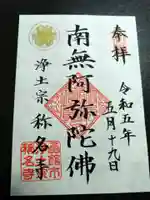 奉拝
令和五年
五月十九日
南無阿弥陀佛
浄土宗 称名寺